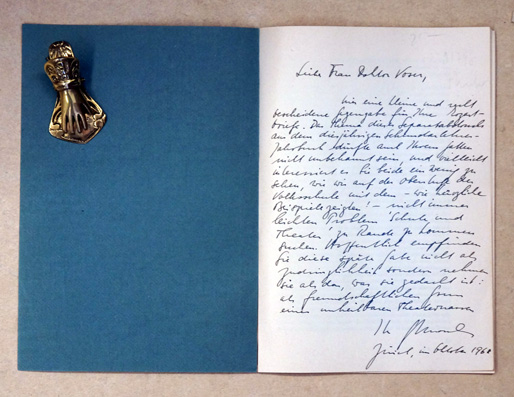 Liebe Frau Doktor Voser,
hier eine kleine und recht
bescheidene Gegengabe für Ihre
Das Thema dieses Separatabdrucks
aus dem diesjährigen Schweizer
Jahrbuch dürfte auch Ihrem Gatten
nicht unbekannt sein, und vielleicht
interessiert es Sie beide ein wenig zu
sehen, wie wir auf der Oberstufe der
Volksschule mit dem – wie
Beispiele zeigten! – nicht immer
leichten Problem "Schule und
Theater" zu Rande zu kommen
suchen. Hoffentlich empfinden
Sie diese späte Gabe nicht als
Zudringlichkeit sondern nehmen
sie als das, was sie gedacht ist:
als freundschaftlichen Gruss
eines unheilbaren Theaternarren
Ihr
Zürich, im Oktober 1960